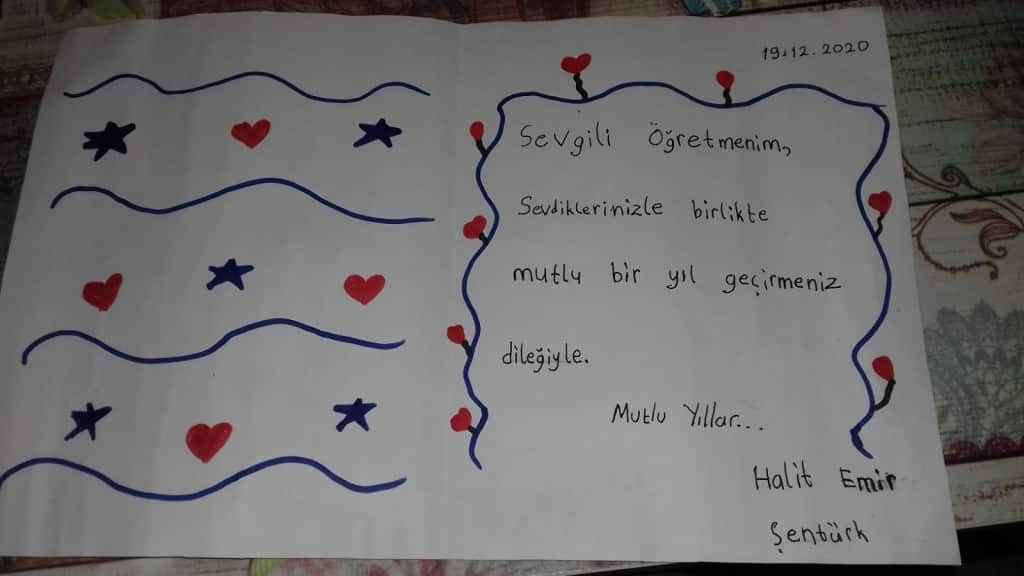 19.12.2020
Sevgili Öğretmenim,
Sevdiklerinizle birlikte
mutlu bir yıl geçirmeniz
dileğiyle.
Mutlu Yıllar...
Halit Emir
Şentürk